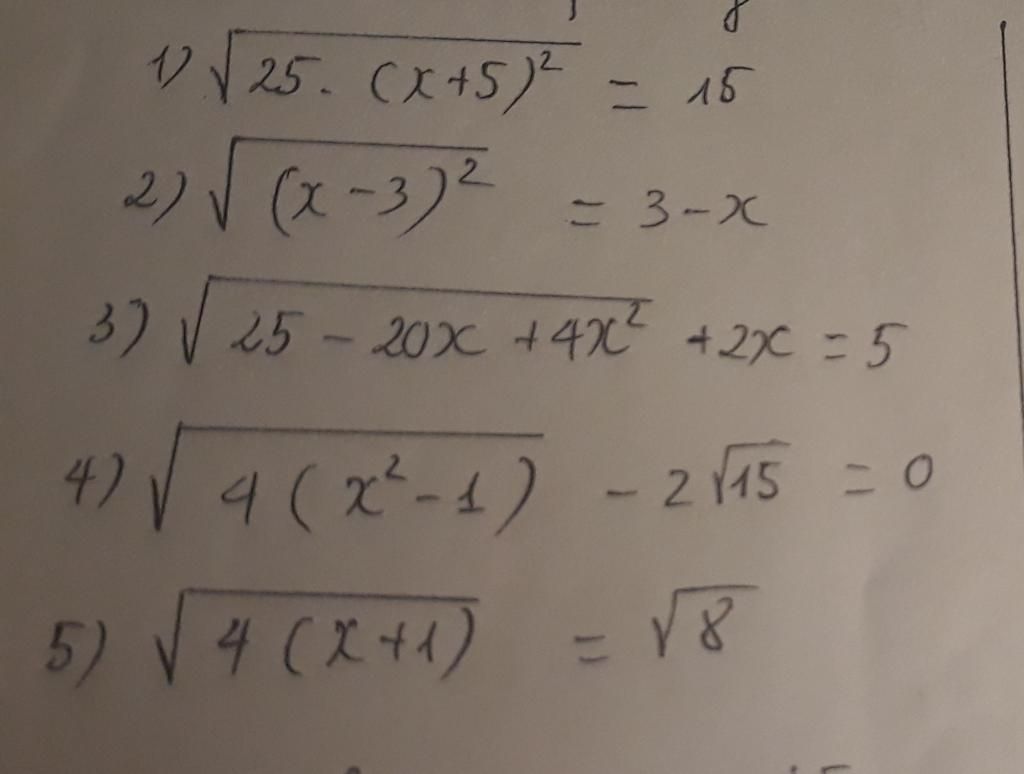 1) √25. (x+5)² = 15
2) √(x-3)² = 3-x
3) √25 - 20x + 4x² + 2x = 5
4) √4(x²-1) - 2√15 = 0
5) √4(x+1) = √8